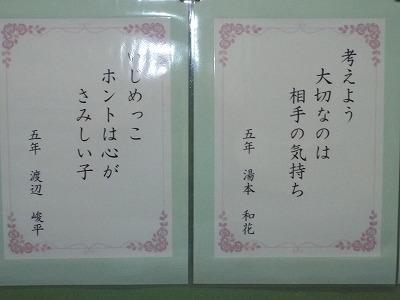 考えよう
大切なのは
相手の気持ち
五年 湯本 和花
いじめっこ
ホントは心が
さみしい子
五年 渡辺 峻平